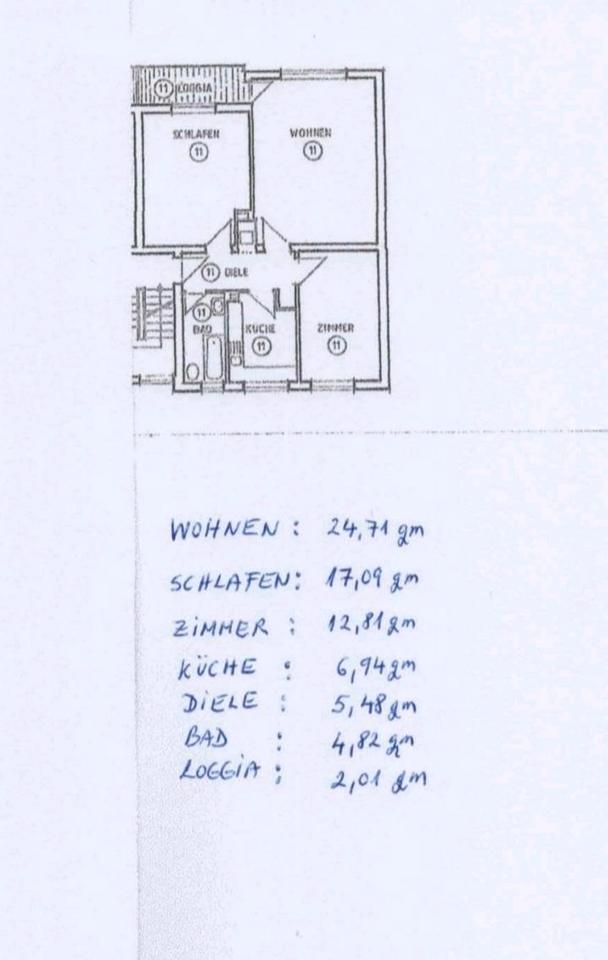 11 LOGGIA
SCHLAFEN
11
WOHNEN
11
11 DIELE
11
BAD
KÜCHE
11
ZIMMER
11
WOHNEN : 24,71 qm
SCHLAFEN: 17,09 qm
ZiMMER : 12,81 qm
KÜCHE : 6,94 qm
DiELE : 5,48 qm
BAD : 4,82 qm
LOGGiA : 2,01 qm